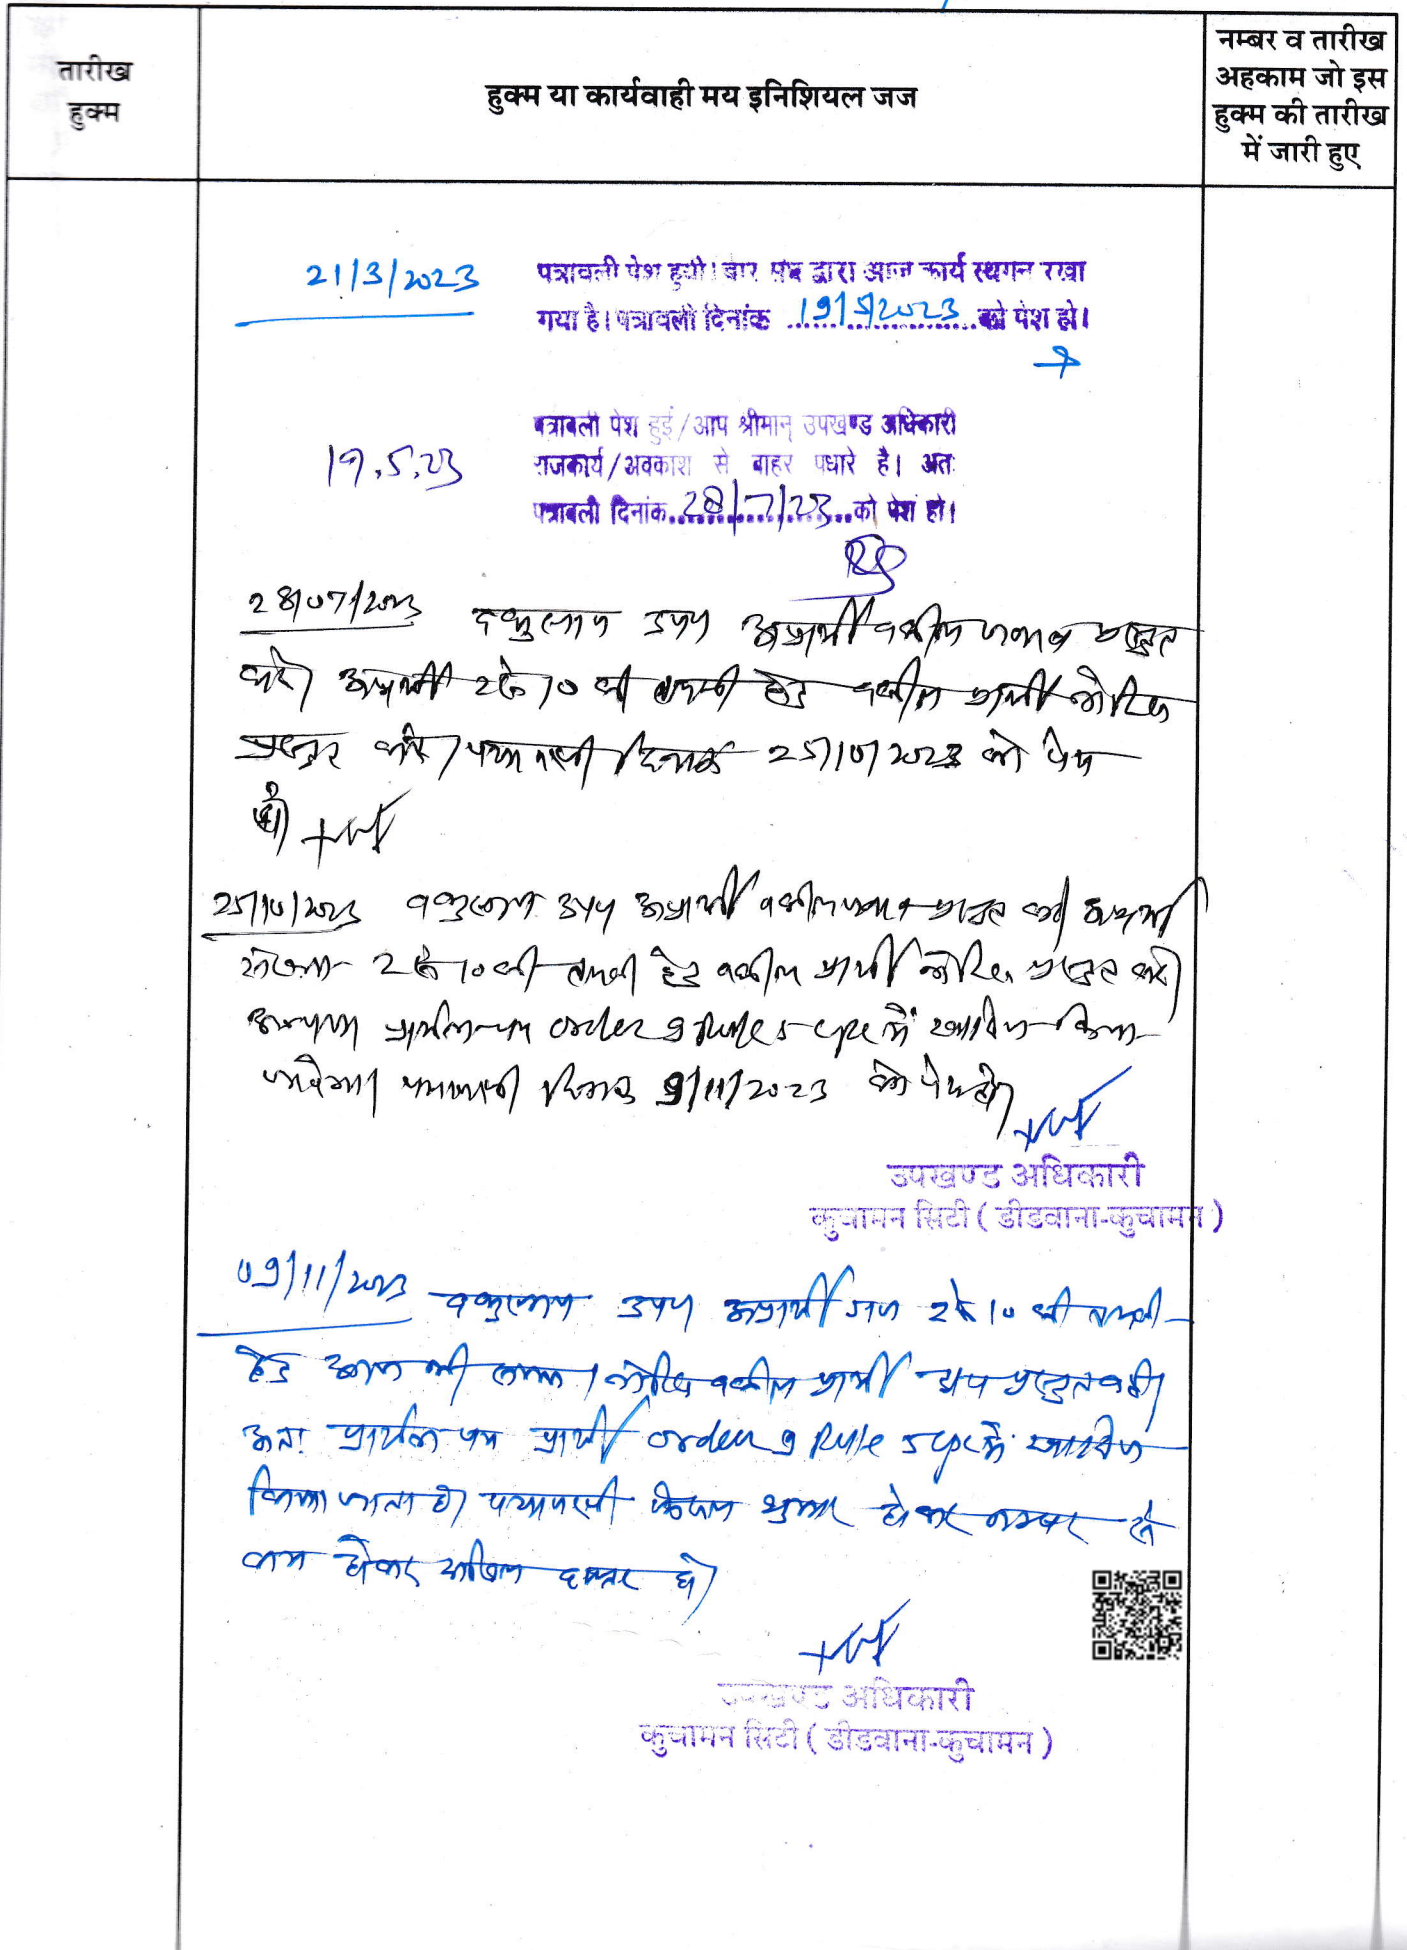 तारीख
हुक्म
हुक्म या कार्यवाही मय इनिशियल जज
नम्बर व तारीख
अहकाम जो इस
हुक्म की तारीख
में जारी हुए
21/3/2023
पत्रावली पेश हुयी। बार संघ द्वारा आज कार्य स्थगन रखा
गया है। पत्रावली दिनांक 19/5/2023 को पेश हो।
19.5.23
पत्रावली पेश हुई/आप श्रीमान् उपखण्ड अधिकारी
राजकार्य/अवकाश से बाहर पधारे है। अतः
पत्रावली दिनांक 28/7/23 को पेश हो।
28/07/2023 वकुलाय उपप अप्रार्थी वकील जवाब प्रस्तुत
करे। अप्रार्थी 2 से 10 की तामली हेतु वकील प्रार्थी नोटिस
प्रस्तुत करे। पत्रावली दिनांक 25/10/2023 को पेश
हो।
25/10/2023 वकुलाय उपप अप्रार्थी वकील जवाब प्रस्तुत करे। अप्रार्थी
संख्या 2 से 10 की तामली हेतु वकील प्रार्थी नोटिस प्रस्तुत करे।
अन्यथा प्रार्थना पत्र order 9 Rule 5 cpc में खारिज किया
जावेगा। पत्रावली दिनांक 9/11/2023 को पेश हो।
उपखण्ड अधिकारी
कुचामन सिटी ( डीडवाना-कुचामन )
09/11/2023 वकुलाय उपप अप्रार्थी गण 2 से 10 की तामली
हेतु आज भी नोटिस वकील प्रार्थी प्रस्तुत नही।
अतः प्रार्थना पत्र प्रार्थी order 9 Rule 5 cpc में खारिज
किया जाता है। पत्रावली फैसल शुमार होकर नम्बर से
कम होकर दाखिल दफ्तर हो।
उपखण्ड अधिकारी
कुचामन सिटी ( डीडवाना-कुचामन )